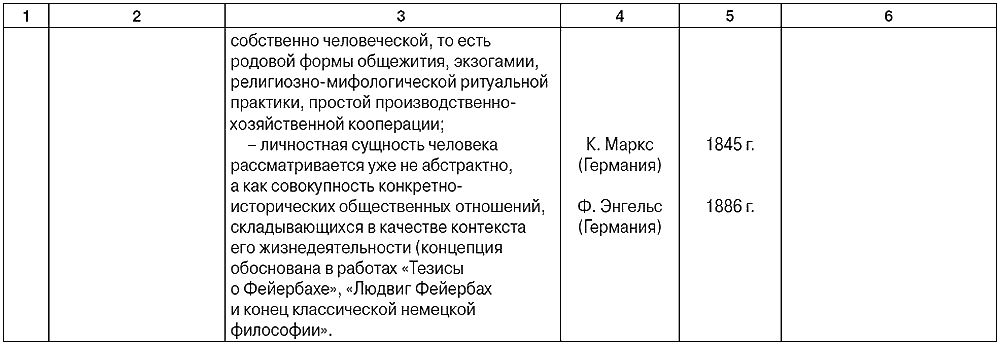 1 2 3 4 5 6
собственно человеческой, то есть
родовой формы общежития, экзогамии,
религиозно-мифологической ритуальной
практики, простой производственно-
хозяйственной кооперации;
– личностная сущность человека К. Маркс 1845 г.
рассматривается уже не абстрактно, (Германия)
а как совокупность конкретно-
исторических общественных отношений, Ф. Энгельс 1886 г.
складывающихся в качестве контекста (Германия)
его жизнедеятельности (концепция
обоснована в работах «Тезисы
о Фейербахе», «Людвиг Фейербах
и конец классической немецкой
философии».